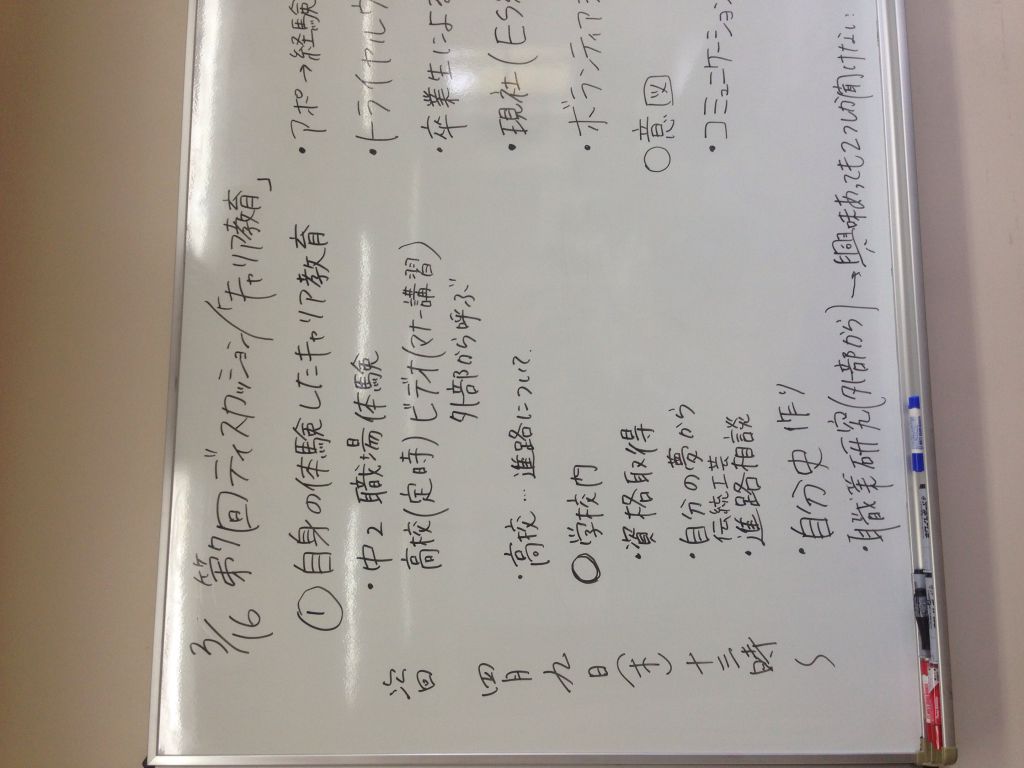 3/16 第7回ディスカッション「キャリア教育」
① 自身の体験したキャリア教育
・中2 職場体験
高校(定時) ビデオ(マナー講習)
外部から呼ぶ
・高校… 進路について
○学校内
・資格取得
・自分の夢から
伝統工芸
・進路相談
・自分史 作り
・職業研究(外部から) → 興味あっても2つしか聞けない
・アポ→経験
・トライヤル
・卒業生による
・現社(ES
・ボランティア
○意図
・コミュニケーション
四月九日(木)十三時〜